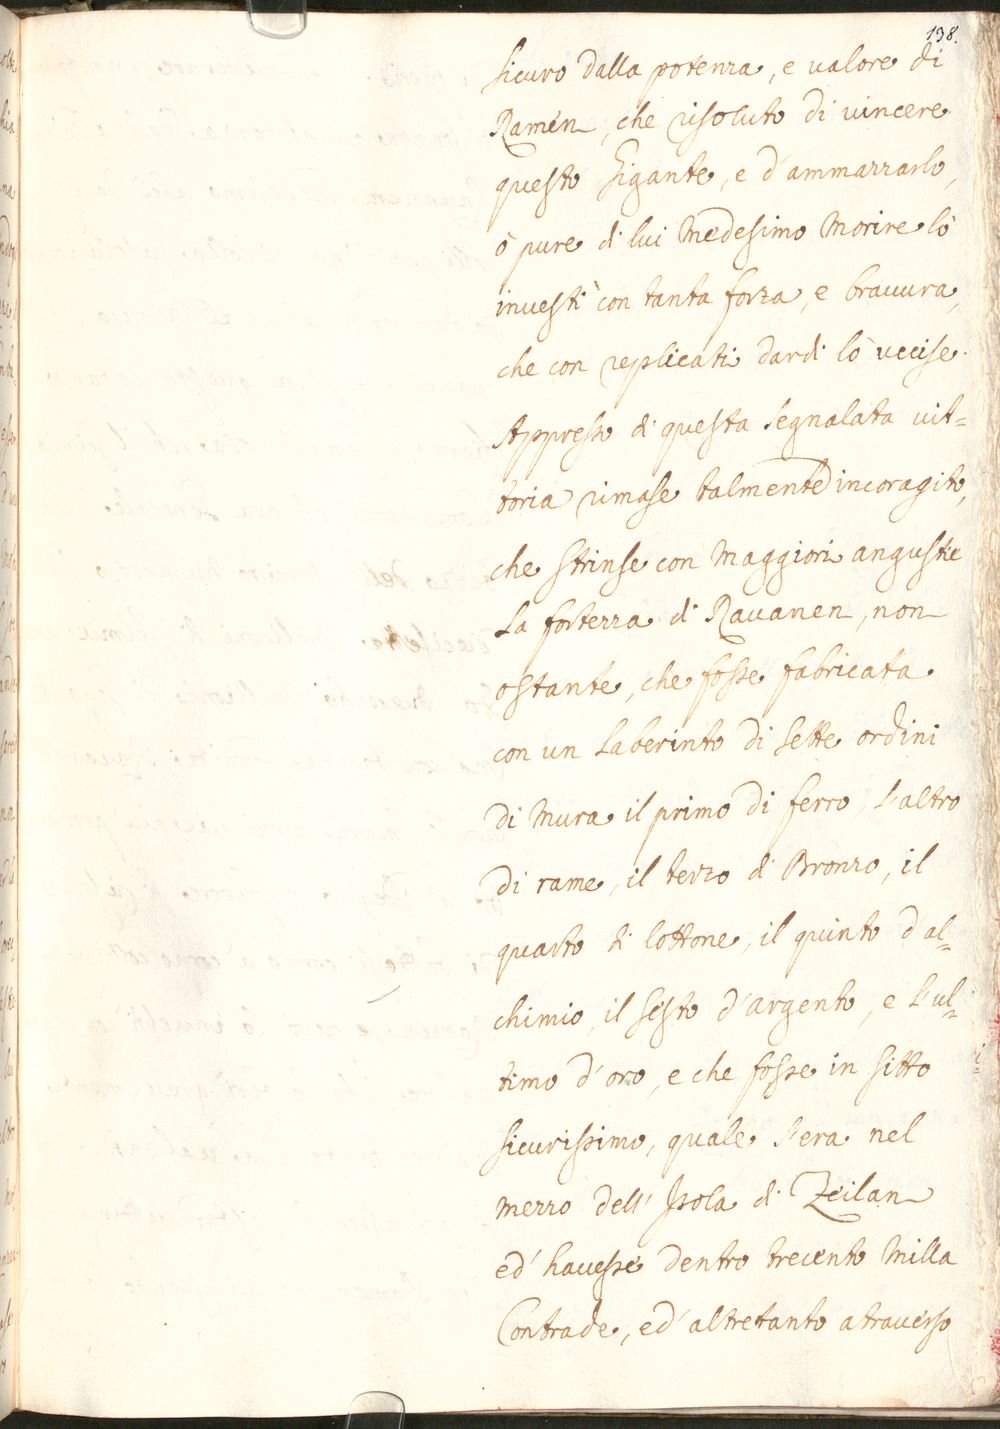 138.
sicuro dalla potenza, e valore di
Ramen, che risoluto di vincere
questo Gigante, e d'ammazzarlo,
ò pure di lui Medesimo Morire lò
investì con tanta forza, e bravura,
che con replicati dardi lò uccise.
Appresso di questa segnalata vit=
toria rimase talmente incoragito,
che strinse con Maggiori angustie
La fortezza di Ravanen, non
ostante, che fosse fabricata
con un Laberinto di sette ordini
di Mura il primo di ferro, L'altro
di rame, il terzo di Bronzo, il
quarto di lottone, il quinto d'al=
chimio, il sesto d'argento, e L'ul=
timo d'oro, e che fosse in sitto
sicurissimo, quale s'era nel
mezzo dell' Isola di Zeilan
ed' havesse dentro trecento Milla
Contrade, ed' altretanto atraverso